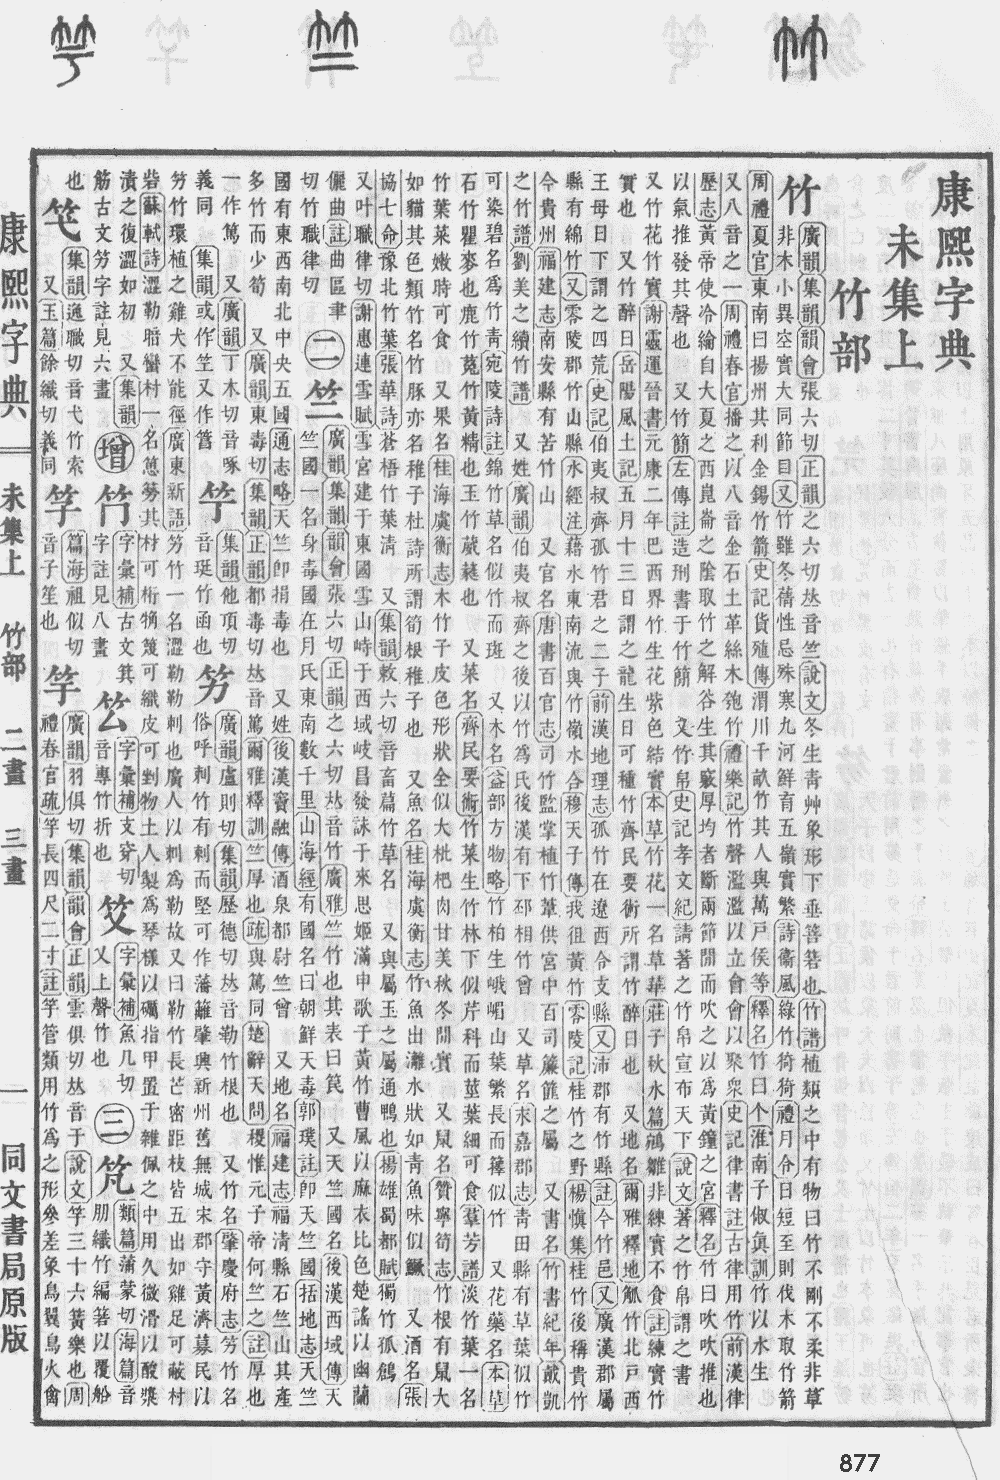 康熙字典
未集上
竹部
竹
廣韻集韻韻會張六切正韻之六切𠀤音竺說文冬生靑艸象形下垂箁箬也竹譜植類之中有物曰竹不剛不柔非草
非木小異空實大同節目又竹雖冬蒨性忌殊寒九河鮮育五嶺實繁詩衞風綠竹猗猗禮月令日短至則伐木取竹箭
周禮夏官東南曰揚州其利金錫竹箭史記貨殖傳渭川千畝竹其人與萬戸侯等釋名竹曰个淮南子俶眞訓竹以水生
又八音之一周禮春官播之以八音金石土革絲木匏竹禮樂記竹聲濫濫以立會會以聚衆史記律書註古律用竹前漢律
歷志黃帝使冷綸自大夏之西昆侖之陰取竹之解谷生其竅厚均者斷兩節閒而吹之以爲黃鐘之宮釋名竹曰吹吹推也
以氣推發其聲也 又竹簡左傳註造刑書于竹簡 又竹帛史記孝文紀請著之竹帛宣布天下說文著之竹帛謂之書
又竹花竹實謝靈運晉書元康二年巴西界竹生花紫色結實本草竹花一名草華莊子秋水篇鵷雛非練實不食註練實竹
實也 又竹醉日岳陽風土記五月十三日謂之龍生日可種竹齊民要術所謂竹醉日也 又地名爾雅釋地觚竹北戸西
王母日下謂之四荒史記伯夷叔齊孤竹君之二子前漢地理志孤竹在遼西令支縣又沛郡有竹縣註今竹邑又廣漢郡屬
縣有綿竹又零陵郡竹山縣水經注藉水東南流與竹嶺水合穆天子傳我徂黃竹零陵記桂竹之野楊愼集桂竹後稱貴竹
今貴州福建志南安縣有苦竹山 又官名唐書百官志司竹監掌植竹葦供宮中百司簾篚之屬 又書名竹書紀年戴凱
之竹譜劉美之續竹譜 又姓廣韻伯夷叔齊之後以竹爲氏後漢有下邳相竹曾 又草名永嘉郡志靑田縣有草葉似竹
可染碧名爲竹靑宛陵詩註錦竹草名似竹而斑 又木名益部方物略竹柏生峨嵋山葉繁長而籜似竹 又花藥名本草
石竹瞿麥也鹿竹菟竹黃精也玉竹葳蕤也 又菜名齊民要術竹菜生竹林下似芹科而莖葉細可食羣芳譜淡竹葉一名
竹葉菜嫩時可食 又果名桂海虞衡志木竹子皮色形狀全似大枇杷肉甘美秋冬閒實 又鼠名贊寧筍志竹根有鼠大
如貓其色類竹名竹豚亦名稚子杜詩所謂筍根稚子也 又魚名桂海虞衡志竹魚出灕水狀如靑魚味似鱖 又酒名張
協七命豫北竹葉張華詩蒼梧竹葉淸 又集韻敕六切音畜萹竹草名 又與䴈玉之屬通鴨也揚雄蜀都賦獨竹孤鶬
又叶職律切謝惠連雪賦雪宮建于東國雪山峙于西域岐昌發詠于來思姬滿申歌于黃竹曹風以麻衣比色楚謠以幽蘭
儷曲註曲區聿切竹職律切
二
竺
廣韻集韻韻會張六切正韻之六切𠀤音竹廣雅竺竹也其表曰笢 又天竺國名後漢西域傳天
竺國一名身毒國在月氏東南數千里山海經有國名曰朝鮮天毒郭璞註卽天竺國括地志天竺
國有東西南北中央五國通志略天竺卽捐毒也 又姓後漢竇融傳酒泉都尉竺曾 又地名福建志福淸縣石竺山其產
多竹而少筍 又廣韻東毒切集韻正韻都毒切𠀤音篤爾雅釋訓竺厚也疏與篤同楚辭天問稷惟元子帝何竺之註厚也
一作篤 又廣韻丁木切音啄
義同 集韻或作笁又作䈞
䇏
集韻他頂切音珽竹函也
竻
廣韻盧則切集韻歷德切𠀤音勒竹根也 又竹名肇慶府志竻竹名
俗呼刺竹有刺而堅可作藩籬肇興新州舊無城宋郡守黃濟募民以
竻竹環植之雞犬不能徑廣東新語竻竹一名澀勒勒刺也廣人以刺爲勒故又曰勒竹長芒密距枝皆五出如雞足可蔽村
砦蘇軾詩澀勒暗蠻村一名䓗竻其材可桁桷篾可織皮可剉物土人製爲琴樣以礪指甲置于雜佩之中用久微滑以酸漿
漬之復澀如初 又集韻筋古文竻字註見六畫
增
字彙補古文箕字註見八畫
字彙補支穿切音專竹折也
字彙補魚几切又上聲竹也
三
竼
類篇蒲蒙切海篇音朋織竹編箬以覆船也
笁
集韻逸職切音弋竹索 又玉篇餘織切義同
篇海祖似切音子笙也
竽
廣韻羽俱切集韻韻會正韻雲俱切𠀤音于說文竽三十六簧樂也周
禮春官疏竽長四尺二寸註竽管類用竹爲之形參差象鳥翼鳥火禽
康熙字典
未集上 竹部 二畫 三畫
一
同文書局原版
877